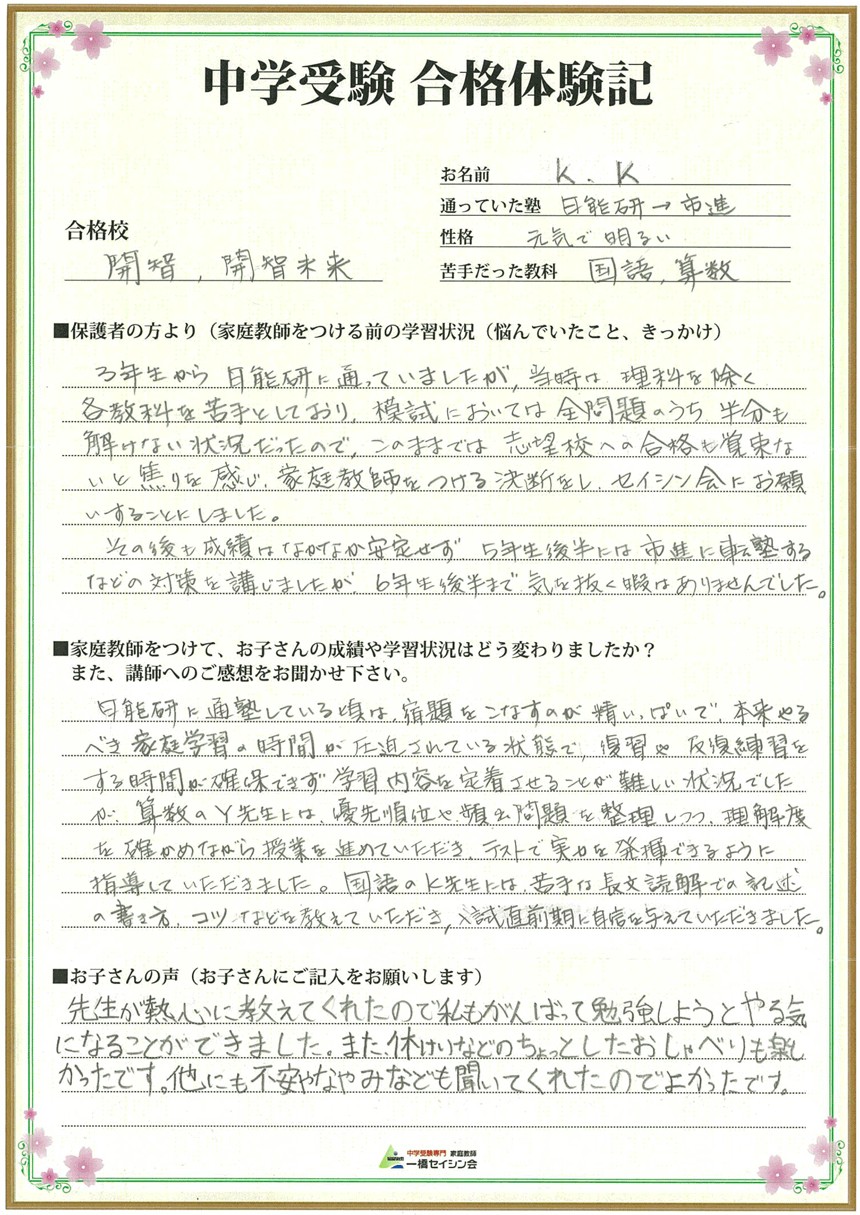 中学受験 合格体験記
お名前 K.K
通っていた塾 日能研→市進
合格校
性格 元気で明るい
開智, 開智未来
苦手だった教科 国語, 算数
■保護者の方より（家庭教師をつける前の学習状況（悩んでいたこと、きっかけ）
3年生から日能研に通っていましたが, 当時は理科を除く
各教科を苦手としており, 模試においては全問題のうち半分も
解けない状況だったので, このままでは志望校への合格も覚束な
いと焦りを感じ, 家庭教師をつける決断をし, セイシン会にお願
いすることにしました。
その後も成績はなかなか安定せず 5年生後半には市進に転塾する
などの対策を講じましたが, 6年生後半まで気を抜く暇はありませんでした。
■家庭教師をつけて、お子さんの成績や学習状況はどう変わりましたか？
また、講師へのご感想をお聞かせ下さい。
日能研に通塾している頃は, 宿題をこなすのが精いっぱいで, 本来やる
べき家庭学習の時間が圧迫されている状態で, 復習や反復練習を
する時間が確保できず学習内容を定着させることが難しい状況でした
が, 算数のY先生には, 優先順位や頻出問題を整理しつつ, 理解度
を確かめながら授業を進めていただき, テストで実力を発揮できるように
指導していただきました。国語のK先生には, 苦手な長文読解での記述
の書き方, コツなどを教えていただき, 入試直前期に自信を与えていただきました。
■お子さんの声（お子さんにご記入をお願いします）
先生が熱心に教えてくれたので私もがんばって勉強しようとやる気
になることができました。また、休けいなどのちょっとしたおしゃべりも楽し
かったです。他にも不安やなやみなども聞いてくれたのでよかったです。
中学受験専門 家庭教師
一橋セイシン会